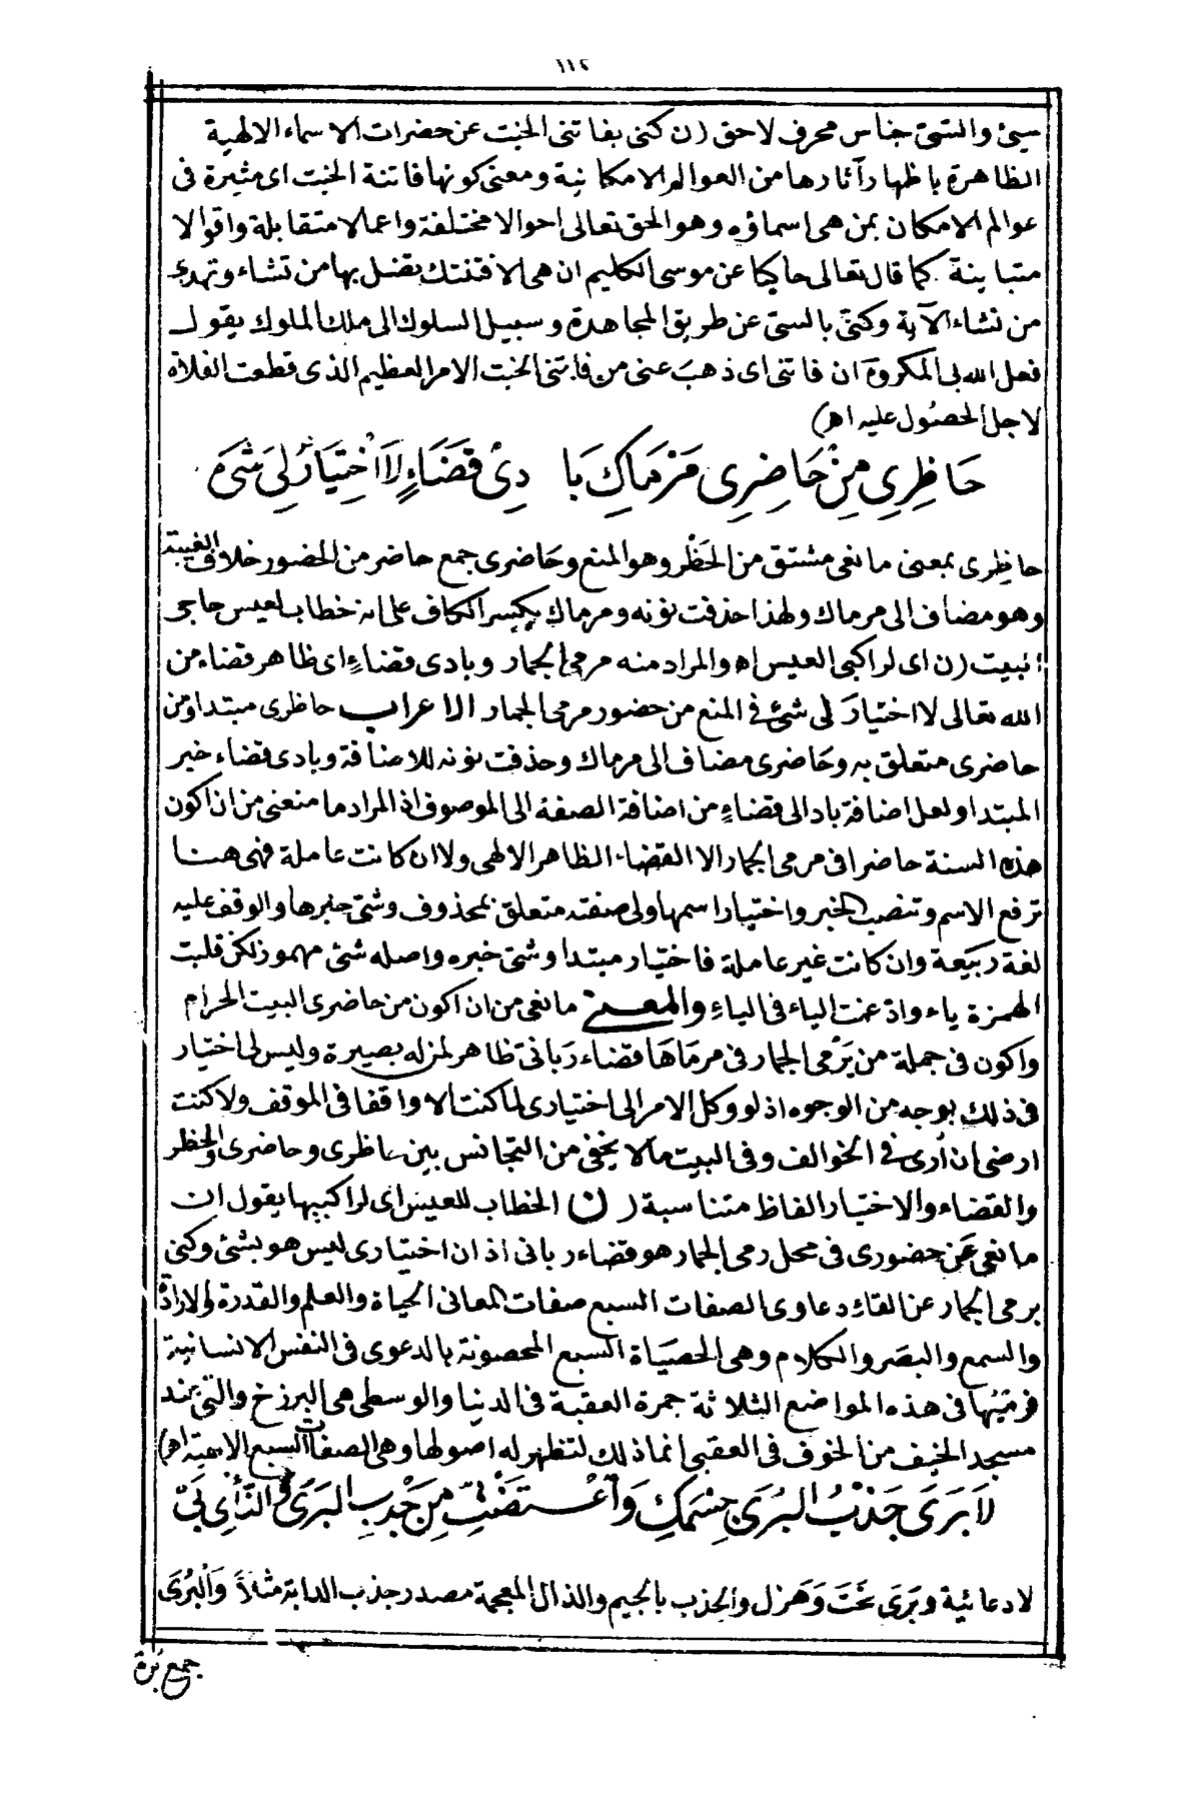 ١١٢
سيئ والستى جناس محرف لاحق (ن كنى بفاتنى الخبت عن حضرات الاسماء الالهية
الظاهرة باظهار آثارها من العوالم الامكانية ومعنى كونها فاتنة الخبت اى مثيرة فى
عوالم الامكان بمن هى اسماؤه وهو الحق تعالى احوالا مختلفة واعمالا متقابلة واقوالا
متباينة كما قال تعالى حاكيا عن موسى الكليم ان هى الا فتنتك تضل بها من تشاء وتهدى
من تشاء الآية وكنى بالستى عن طريق المجاهدة وسبيل السلوك الى ملك الملوك يقول
فعل الله بى المكروه ان فاتنى اى ذهب عنى من فاتنى الخبت الامر العظيم الذى قطعت الفلاة
لاجل الحصول عليه اه)
حَاظِرِى مِنْ حَاضِرِى مَرْمَاكِ بَا دِىْ قَضَاءٍ لَا اخْتِيَارَ لِىَ شَىْ
حاظِرى بمعنى مانعى مشتق من الحَظْر وهو المنع وحَاضرى جمع حاضر من الحضور خلاف الغيبة
وهو مضاف الى مرماك ولهذا حذفت نونه ومرماكِ بكسر الكاف على انه خطاب لعيس حاجى
البيت (ن اى لراكبى العيس اه) والمراد منه مرمى الجمار وبادى قضاءٍ اى ظاهر قضاء من
الله تعالى لا اختيارَ لى شئ فى المنع من حضور مرمى الجمار الاعراب حاظرى مبتدا ومن
حاضرى متعلق به وحَاضرى مضاف الى مرماك وحذفت نونه للاضافة وبادى قضاء خبر
المبتدا ولعل اضافة باد الى قضاءٍ من اضافة الصفة الى الموصوف اذ المراد ما منعنى من ان اكون
هذه السنة حاضرا فى مرمى الجمار الا القضاء الظاهر الالهى ولا ان كانت عاملة فهى هنا
ترفع الاسم وتنصب الخبر واختيار اسمها ولى صفته متعلق بمحذوف وشئ خبرها والوقف عليه
لغة ربيعة وان كانت غير عاملة فاختيار مبتدا وشئ خبره واصله شئ مهموز لكن قلبت
الهمزة ياء وادغمت الياء فى الياءِ والمعنى مانعى من ان اكون من حاضرى البيت الحرام
واكون فى جملة من يَرْمى الجمار فى مرمَاهَا قضاء رَبانى ظاهر لمن له بصيرة وليس لى اختيار
فى ذلك بوجه من الوجوه اذ لو وكل الامر الى اختيارى لما كنت الا واقفا فى الموقف ولا كنت
ارضى ان اُرى فى الخوالف وفى البيت ما لا يخفى من التجانس بين حاظرى وحاضرى والحظر
والقضاء والاختيار الفاظ متناسبة (ن الخطاب للعيس اى لراكبيها يقول ان
مانعى عَن حضورى فى محل رمى الجمار هو قضاء ربانى اذ ان اختيارى ليس هو بشئ وكنى
برمى الجمار عن القاء دعاوى الصفات السبع صفات المعانى الحياة والعلم والقدرة والارادة
والسمع والبصَر والكلام وهى الحصيَاة السبع المحصونة بالدعوى فى النفس الانسانية
فرميُها فى هذه المواضع الثلاثة جمرة العقبة فى الدنيا والوسطى هى البرزخ والتى عند
مسجد الخيف من الخوف فى العقبى انما ذلك لتظهر له اصولها وهى الصفات السبع الالهية اه)
لَا بَرَى جَذْبُ البُرَى جِسْمَكِ وَاعْتَضْتِ مِنْ جَدْبِ البَرَى فى النَّأْىِ بَىّ
لا دعائية وبَرَى نحَتَ وَهَزل والجذب بالجيم والذال المعجمة مصدر جذب الدابة مثلاً وَالْبُرَى
جمع بُرة